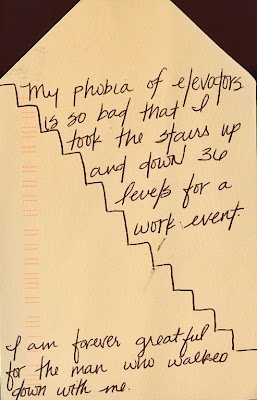 My phobia of elevators
is so bad that I
took the stairs up
and down 36
levels for a
work event.
I am forever greatful
for the man who walked
down with me.